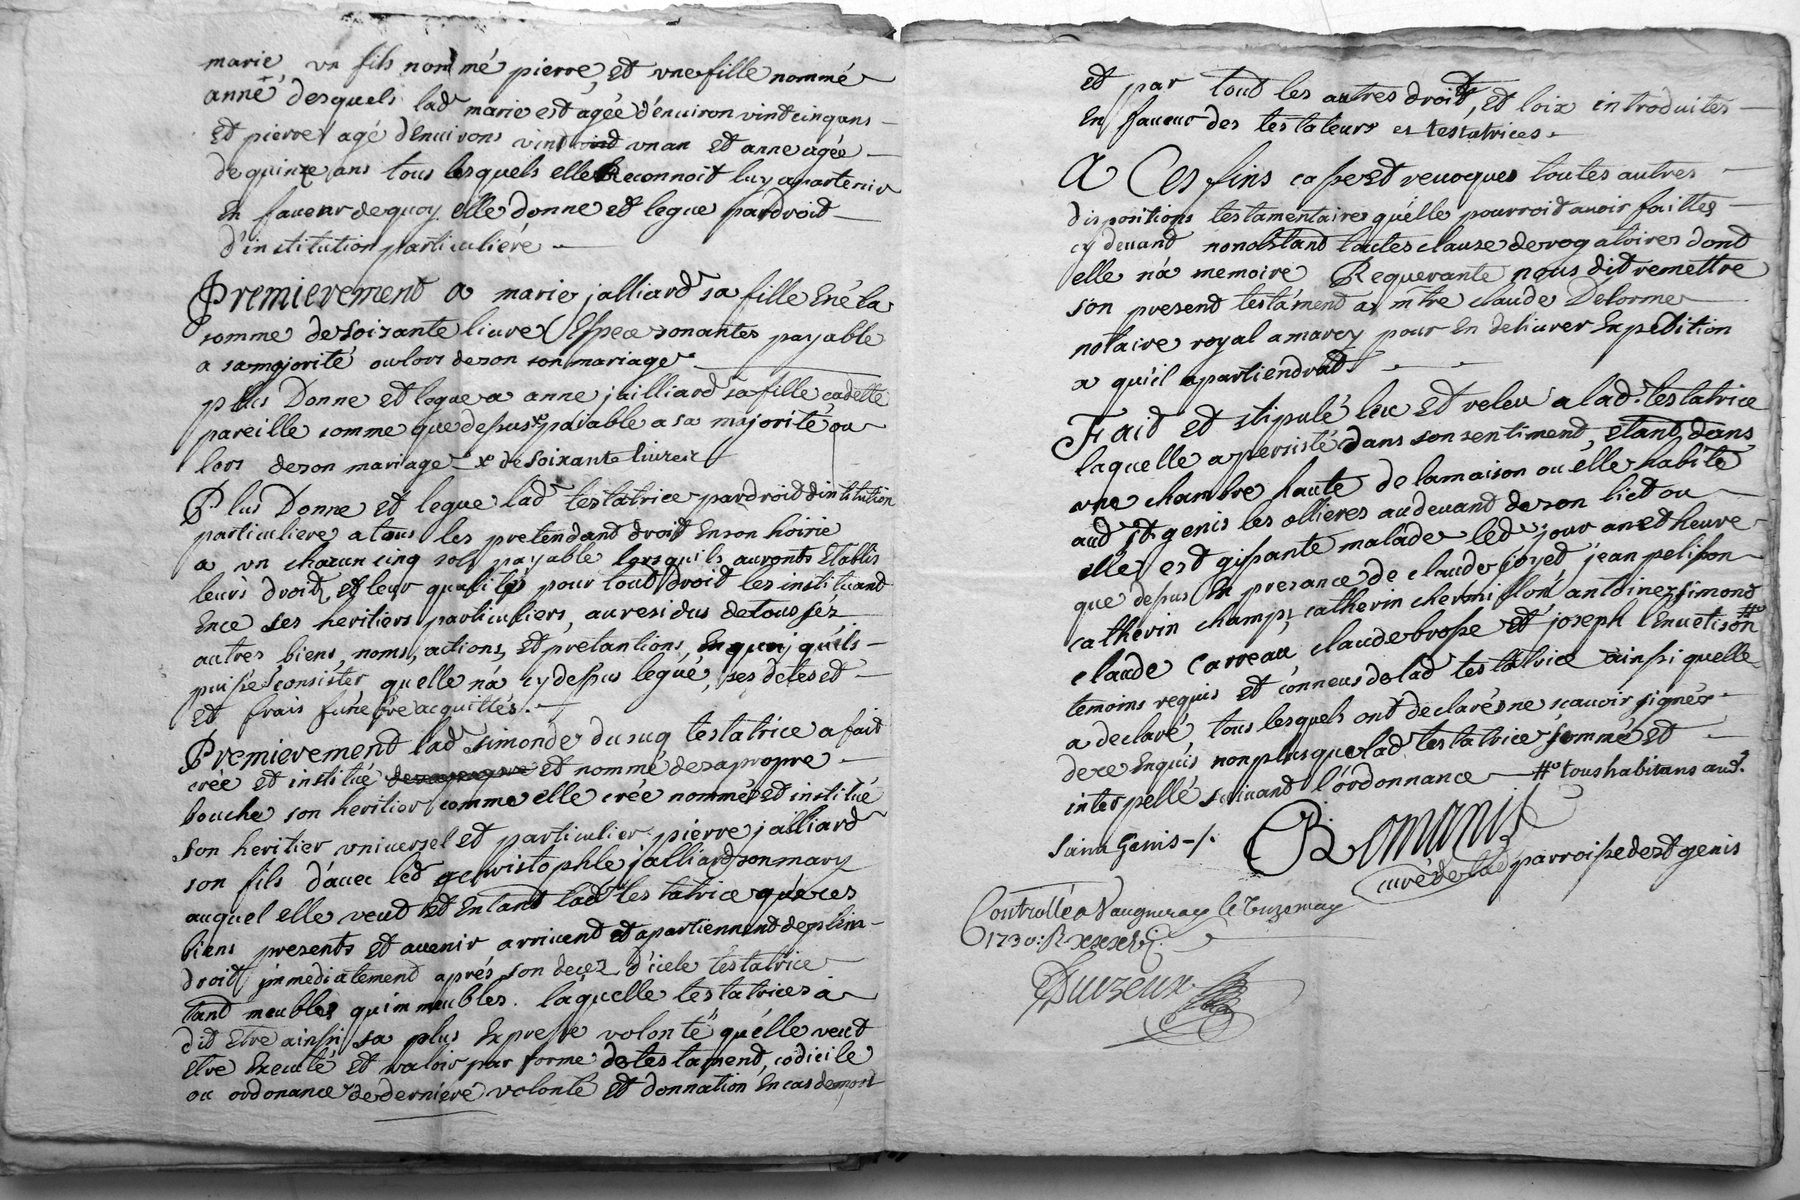 marie un fils nommé pierre, et une fille nommé
anné, desquels lad marie est agée d'enuiron vindcinq ans
et pierre agé d'enuirons vint un an et anne agée
de quinze ans tous lesquels elle Reconnoit luy apartenir
En faueur de quoy elle donne et legue par droit
d'institution particuliére
Premierement a marie jalliard sa fille Enéla
somme de soizante liures Espece sonantes payable
a sa majorité ou lors de son son mariage
plus Donne et legue a anne jailliard sa fille cadette
pareille somme que depus x paiable a sa majorité ou
lors de son mariage x de soixante liures
Plus Donne et legue lad testatrice par droit d'intitution
particuliere a tous les pretendant droit En son hoirie
a un chacun cinq sols payable lorsqu'ils auronts Etablis
leurs droits et leur qualités pour tout droit les instituant
Ence ses heritiers particuliers, au residus de tous séz
autres biens, noms, actions, et pretantions, En quoy qu'éils
puisse consister quelle n'a cy depus legué, ses detes et
et frais funébre acquittés.
Premierement lad simonde du suq testatrice a fait
crée et institué et nommé de sa propre
bouche son heritier comme elle crée nommé et institué
son heritier universel et particulier pierre jailliard
son fils d'auec led christophle jalliard son mary
auquel elle veut et Entand lad testatrice que ces
biens presents et auenir arriuent et apartiennent de plein
droit jmmediatement aprés son decez d'icele testatrice
tant meubles qu'immeubles. laquelle testatrice à
dit Etre ainsi sa plus Expresse volonté qu'élle veut
Etre Executé et valoir par forme de testament, codicile
ou ordonance de derniere volonté et donnation En cas de mort
et par tout les autres droits, et loix introduites
En faueur des testateurs et testatrices.
A Ces fins casse et reuoques toutes autres
dispositions testamentaires qu'élle pourroit auoir faittes
cy deuant nonobstant toutes clause derogatoires dont
elle n'a memoire Requerante nous dit remettre
son present testament a mtre claude Delorme
notaire royal a marcy pour En deliurer Expedition
a qu'il apartiendrat
Fait et stipulé leu et releu a lad. testatrice
laquelle a persisté dans son sentiment, etant dans
une chambre haute de la maison ou élle habite
aud st genis les ollieres au deuant de son lict ou
elle est gissante malade led jour an et heure
que depus En presance de claude goyet jean pelisson
catherin champ, catherin chermillon antoinez simond
claude carreau, claude brosse et joseph Enuetison #
temoins requis et connus de lad testatrice ainsi quelle
a declaré, tous lesquels ont declarés ne scauoir signer
de ce Enquis non plus que lad testatrice sommé et
interpellé suiuant l'ordonnance # tous habitans aud.
saint Genis
Romanis
curé de lad parroisse de st genis
Controllé a Vaugneray le
1730: R